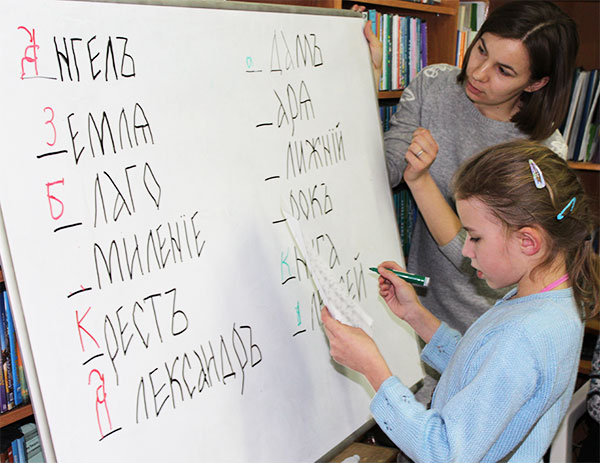 АНГЕЛЪ
ЗЕМЛА
БЛАГО
_МИЛЕНЇЕ
КРЕСТЪ
АЛЕКСАНДРЪ
АДАМЪ
_АРА
_ЛИЖНЇЙ
_РОКЪ
КНИГА